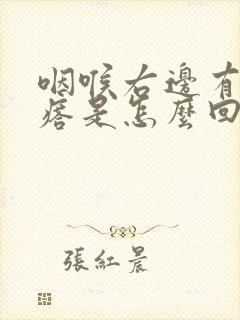 咽喉右邊有
痞是怎麼回
張紅晨